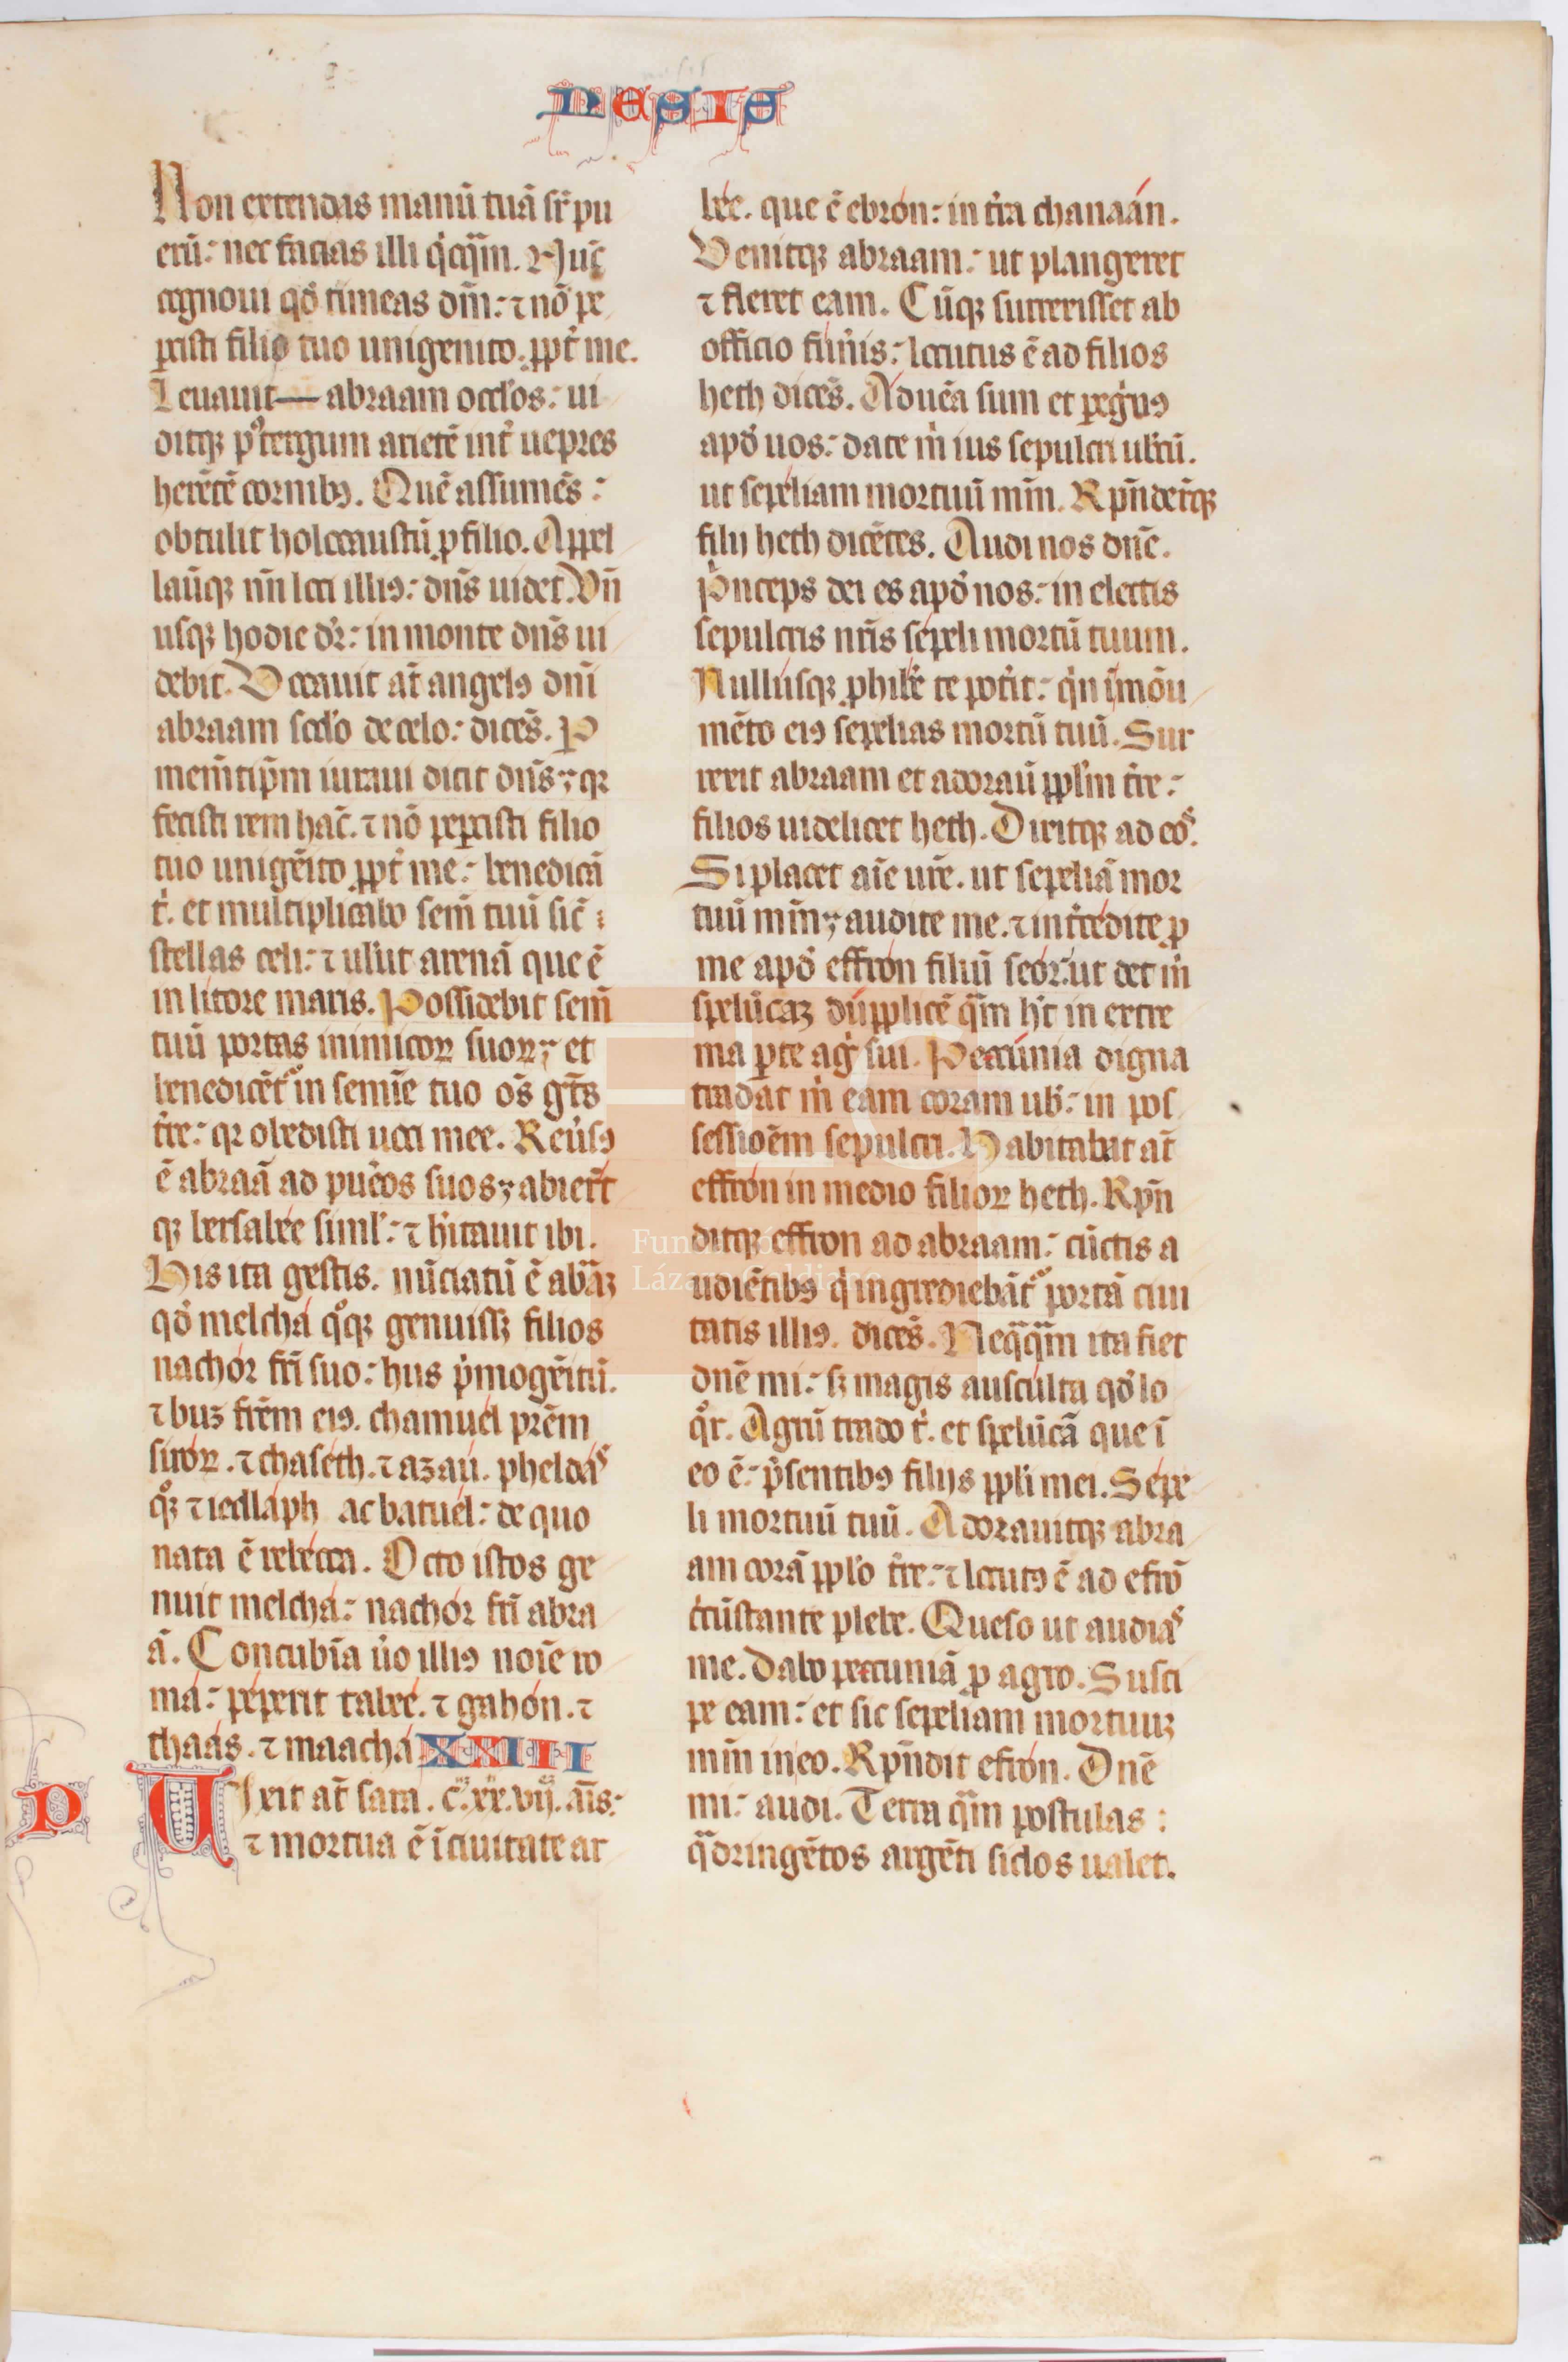 NESIS
Non extendas manū tuā sr̄ pu
erū: nec facias illi q̇cq̄m. Nūc
cognoui qđ timeas dm̄: ⁊ nō pe
ꝑcisti filio tuo unigenito. ꝓpt̄ me.
Leuauit— abraam ocl̄os: ui
ditqꝫ pꝰ tergum arietē int̄ uepres
herētē cornibꝰ. Quē assumēs:
obtulit holocaustū ꝓ filio. Appel
lauitqꝫ nm̄ loci illiꝰ: dn̄s uidet. Vn̄
usqꝫ hodie dr̄: in monte dn̄s ui
debit. Vocauit at̄ angelꝰ dn̄i
abraam scd̄o de celo: dicēs. P
memetip̄m iuraui dicit dn̄s; qr
fecisti rem hāc. ⁊ nō peꝑcisti filio
tuo unigēito ꝓpt̄ me: benedicā
t̄. et multiplicabo sem̄ tuū sic̄
stellas celi: ⁊ uelut arenā que ē
in litore maris. Possidebit sem̄
tuū portas inimicoꝝ suoꝝ; et
benedicēt᷑ in semīe tuo os̄ gt̄s
tr̄e: qr obedisti uoci mee. Reūsꝰ
ē abraā ad pueros suos; abier̄t
qꝫ bersabee siml̄: ⁊ hītauit ibi.
His ita gestis. nūciatū ē abrāꝫ
qđ melcha qͦqꝫ genuissꝫ filios
nachor fr̄i suo: hus p̄mogēitū.
⁊ buz fr̄em eiꝰ. chamuel pr̄em
siroꝝ. ⁊ chaseth. ⁊ azau. pheldas
qͦꝫ ⁊ iedlaph ac batuel: de quo
nata ē rebecca. Octo istos ge
nuit melcha: nachor fr̄i abra
ā. Concubīa ūo illiꝰ noīe ro
ma: peperit tabee. ⁊ gahon. ⁊
thaas. ⁊ maacha XXIII
p
Uixit at̄ sara. c. xx. vij. an̄is:
⁊ mortua ē ī ciuitate ar
bee. que ē ebron: in tr̄a chanaan.
Venitqꝫ abraam: ut plangeret
⁊ fleret eam. Cūqꝫ surrexisset ab
officio fun̄is: locutus ē ad filios
heth dicēs. Aduēa sum et ꝑegrinꝰ
apđ uos: date m̄ ius sepulcri ub̄cū.
ut sepeliam mortuū m̄m. Rn̄der̄tqꝫ
filij heth dicētes. Audi nos dn̄e.
Prīnceps dei es apđ nos: in electis
sepulcris nr̄is sepeli mortū tuum.
Nullusqꝫ ꝓhibē te pot̄it: qn̄ ī mōu
mēto eiꝰ sepelias mortū tuū. Sur
rexit abraam et adorauit ppl̄m tr̄e:
filios uidelicet heth. Dixitqꝫ ad eos.
Si placet aīe ur̄e. ut sepeliā mor
tuū m̄m; audite me. ⁊ int̄cedite ꝓ
me apđ effron filiū seor: ut det m̄
spelūcaꝫ duplicē q̄m ht̄ in extre
ma ꝑte agri sui. Pecunia digna
tradat m̄ eam coram ub̄: in pos
sessioēm sepulcri. Habitabat at̄
effron in medio filioꝝ heth. Rn̄
ditqꝫ effron ad abraam: cūctis a
udiētibꝰ q̇ ingrediebāt᷑ portā ciui
tatis illiꝰ. dicēs. Neq̄q̄m ita fiet
dn̄e mi: sꝫ magis ausculta qđ lo
qͦr. Agrū trado t̄. et spelūcā que ī
eo ē: p̄sentibꝰ filijs ppl̄i mei. Sepe
li mortuū tuū. Adorauitqꝫ abra
am corā ppl̄o tr̄e: ⁊ locutꝰ ē ad efrō
cir̄cūstante plebe. Queso ut audias
me. Dabo pecuniā ꝓ agro. Susci
pe eam: et sic sepeliam mortuuꝫ
m̄m in eo. Rn̄dit efron. Dn̄e
mi: audi. Terra q̄m postulas:
q̄dringētos argēti siclos ualet.
Fundación
Lázaro Galdiano